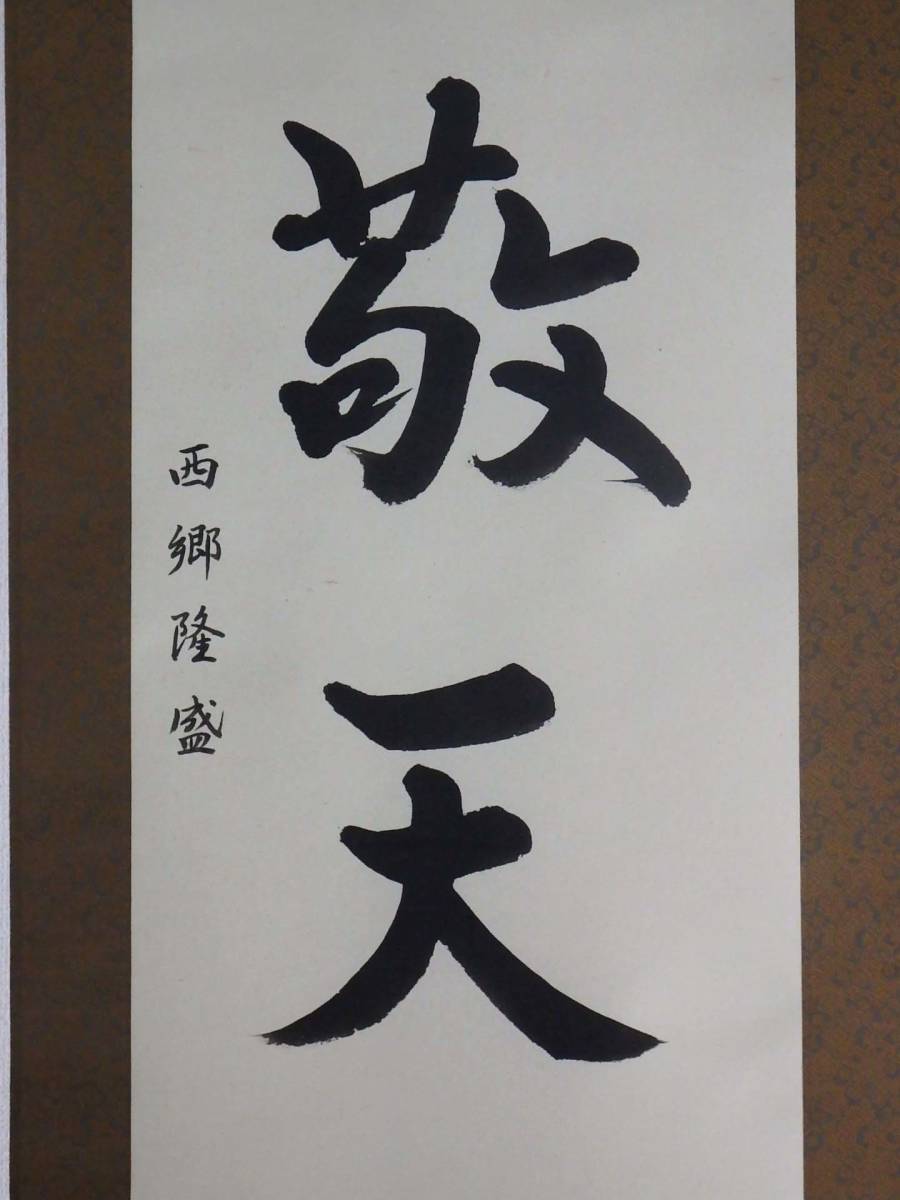 敬天
西郷隆盛